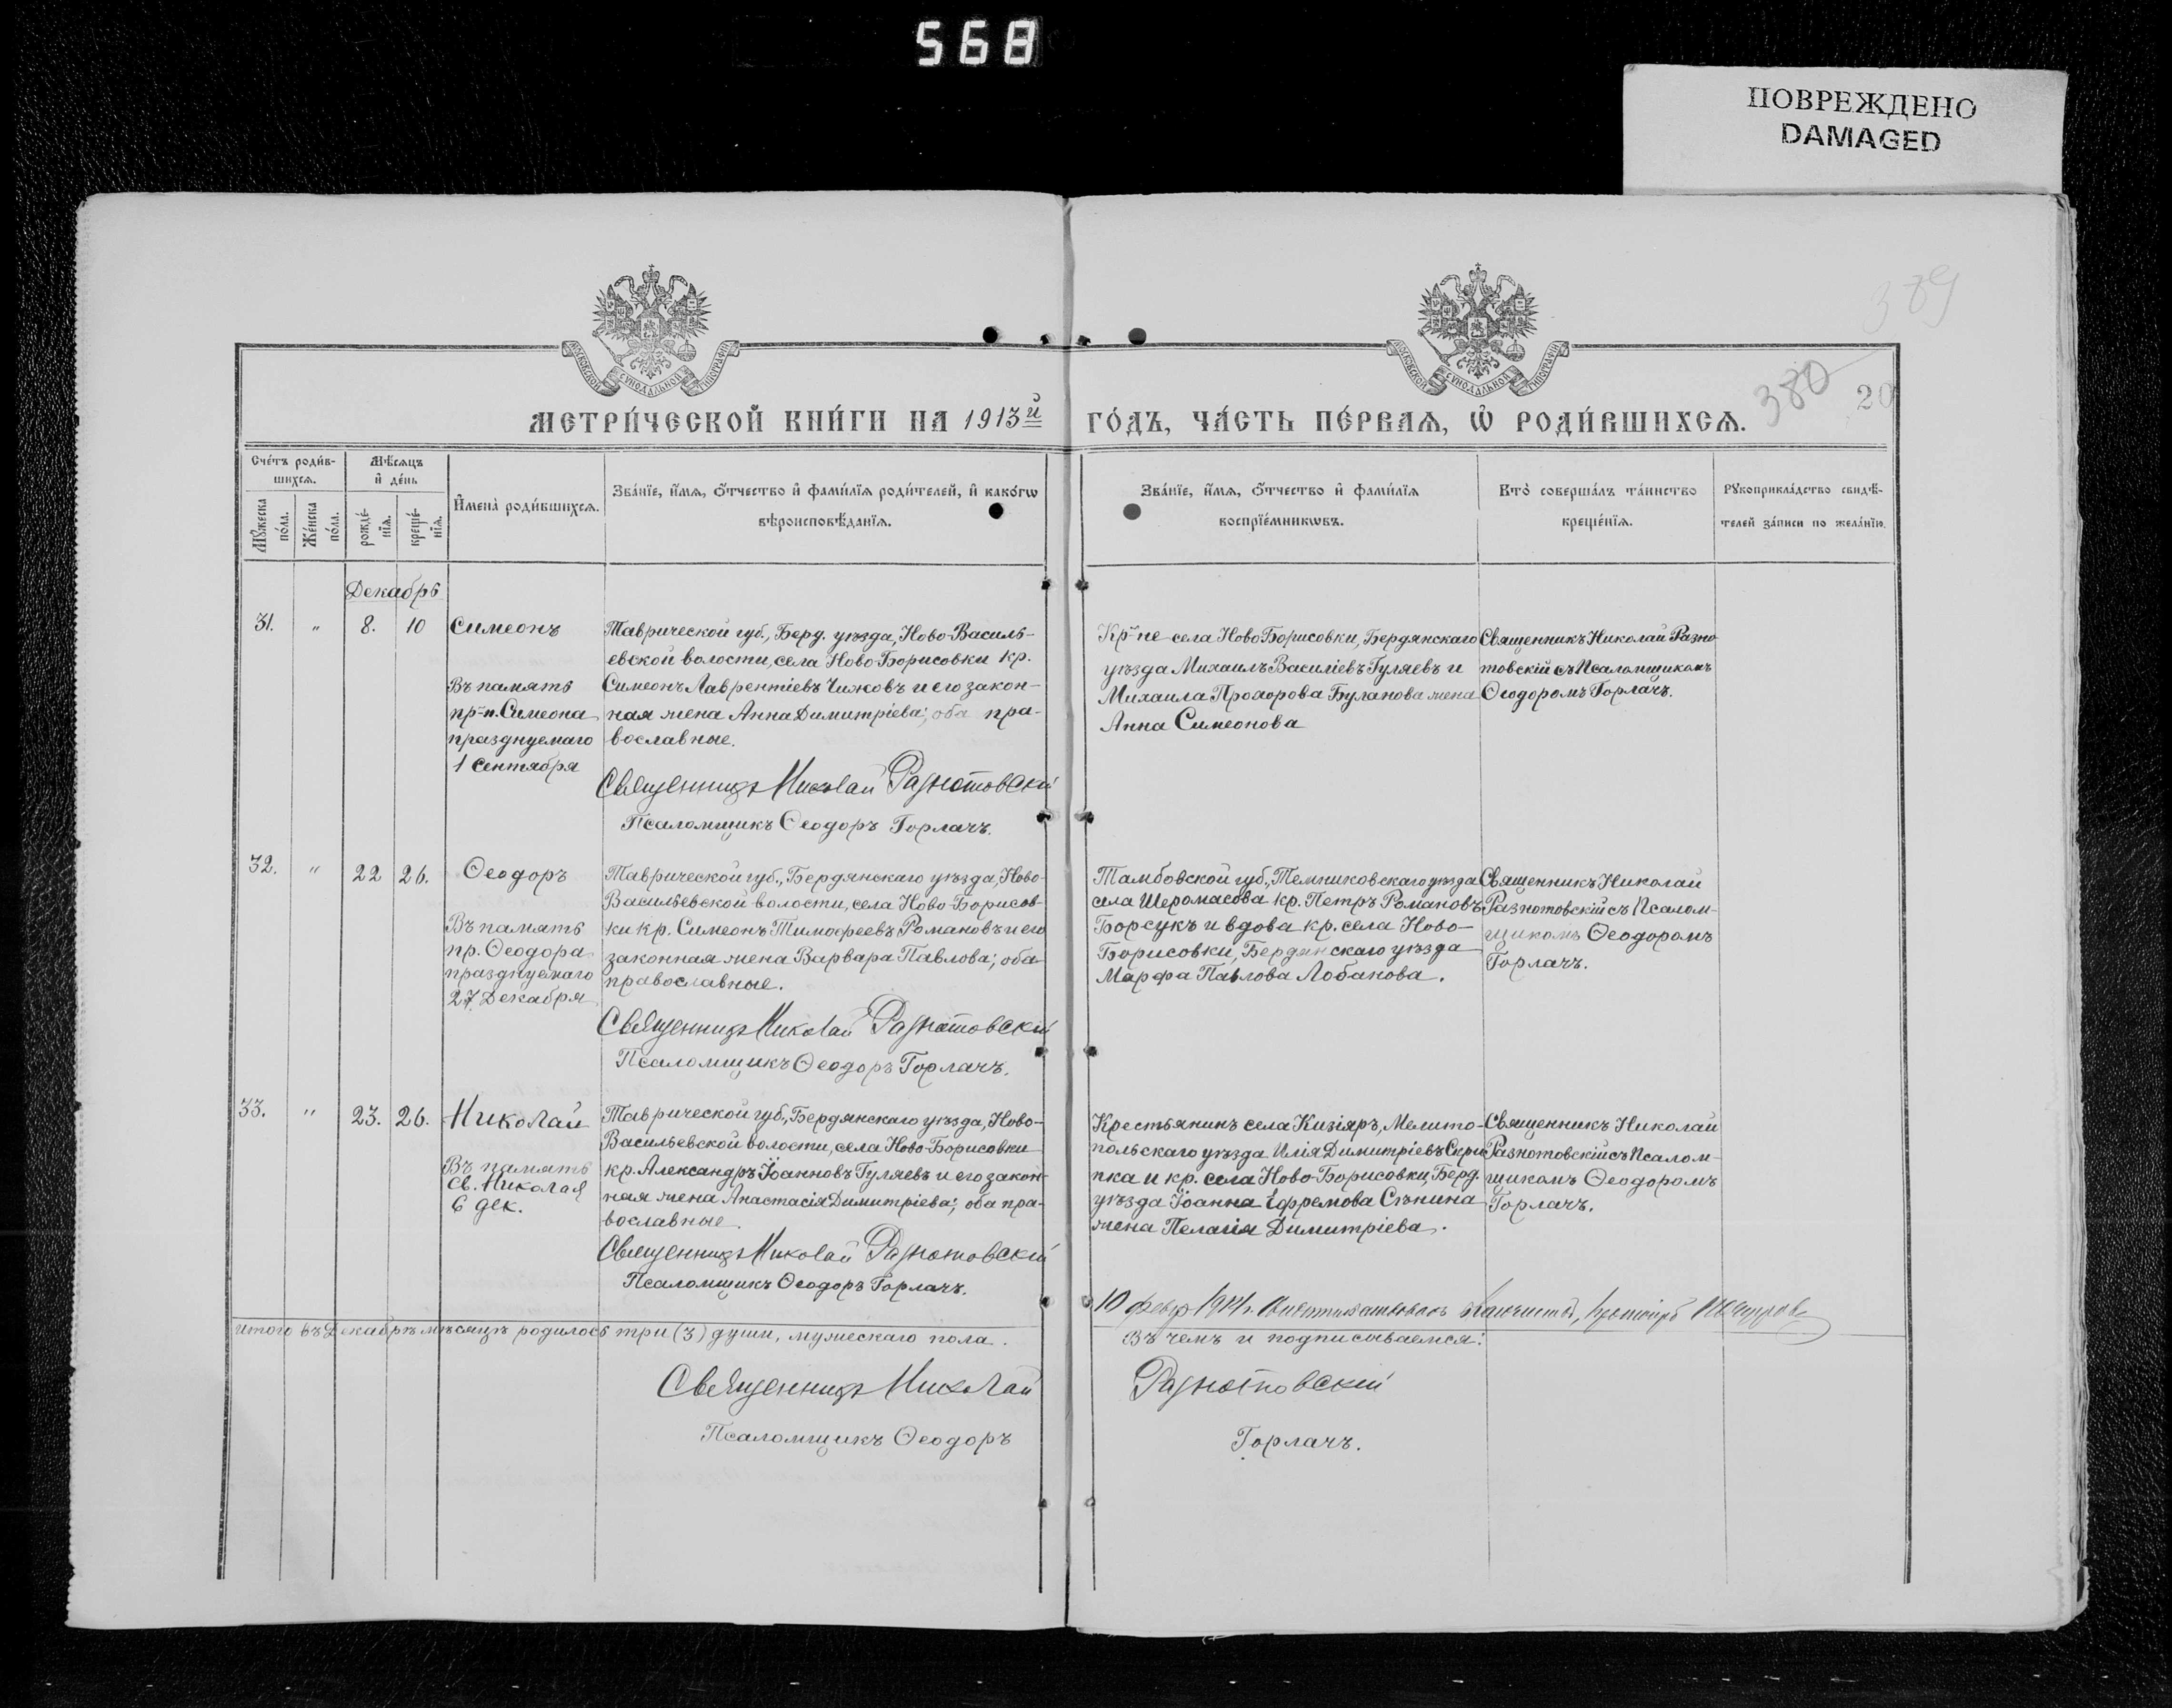 568
ПОВРЕЖДЕНО
DAMAGED
389
380
20
МОСКОВСКОЙ СУНОДАЛЬНОЙ ТИПОГРАФІИ
МОСКОВСКОЙ СУНОДАЛЬНОЙ ТИПОГРАФІИ
МЕТРИ́ЧЕСКОЙ КНИ́ГИ НА 1913й ГО́ДЪ, ЧА́СТЬ ПЕ́РВАѦ, Ѡ҆ РОДИ́ВШИХСѦ.
Сче́тъ роди́в-
шихсѧ.
Мѣ́сѧцъ
и҆ де́нь
Мꙋ́жеска
по́ла.
Же́нска
по́ла.
рожде́-
нїѧ.
креще́-
нїѧ.
И҆мена̀ роди́вшихсѧ.
Зва́нїе, и҆́мѧ, ѻ҆́тчество и҆ фами́лїѧ роди́телей, и҆ како́гѡ
вѣроисповѣ́данїѧ.
Зва́нїе, и҆́мѧ, ѻ҆́тчество и҆ фами́лїѧ
воспрїе́мникѡвъ.
Кто̀ соверша́лъ та́инство
креще́нїѧ.
Рꙋкоприкла́дство свидѣ́-
телей за́писи по жела́нїю.
Декабрь
31. " 8. 10 Симеонъ
Въ память
пр-п. Симеона
празднуемаго
1 Сентября
Таврической губ., Берд. уѣзда, Ново-Василь-
евской волости, села Ново-Борисовки кр.
Симеонъ Лаврентіевъ Чижовъ и его закон-
ная жена Анна Димитріева; оба пра-
вославные.
Священникъ Николай Разнотовскій
Псаломщикъ Ѳеодоръ Горлачъ.
Кр-не села Ново Борисовки, Бердянскаго
уѣзда Михаилъ Василіевъ Гуляевъ и
Михаила Прохорова Буланова жена
Анна Симеонова
Священникъ Николай Разно
товскій съ Псаломщикомъ
Ѳеодоромъ Горлачъ.
32. " 22 26. Ѳеодоръ
Въ память
пр. Ѳеодора
празднуемаго
27 Декабря
Таврической губ., Бердянскаго уѣзда, Ново-
Васильевской волости, села Ново-Борисов-
ки кр. Симеонъ Тимоѳеевъ Романовъ и его
законная жена Варвара Павлова; оба
православные.
Священникъ Николай Разнотовскій
Псаломщикъ Ѳеодоръ Горлачъ.
Тамбовской губ., Темниковскаго уѣзда
села Шеромасова кр. Петръ Романовъ
Борсукъ и вдова кр. села Ново-
Борисовки, Бердянскаго уѣзда
Марфа Павлова Лобанова.
Священникъ Николай
Разнотовскій съ Псалом-
щикомъ Ѳеодоромъ
Горлачъ.
33. " 23. 26. Николай
Въ память
Св. Николая
6 дек.
Таврической губ., Бердянскаго уѣзда, Ново-
Васильевской волости, села Ново-Борисовки
кр. Александръ Іоанновъ Гуляевъ и его закон-
ная жена Анастасія Димитріева; оба пра-
вославные.
Священникъ Николай Разнотовскій
Псаломщикъ Ѳеодоръ Горлачъ.
Крестьянинъ села Кизіяръ, Мелито-
польскаго уѣзда Илія Димитріевъ Скри
пка и кр. села Ново-Борисовки, Берд.
уѣзда Іоанна Ефремова Сѣнина
жена Пелагія Димитріева.
Священникъ Николай
Разнотовскій съ Псалом-
щикомъ Ѳеодоромъ
Горлачъ.
10 февр 1914г.
Итого въ Декабрѣ мѣсяцѣ родилось три (3) души, мужескаго пола.
Въ чемъ и подписываемся:
Священникъ Николай Разнотовскій
Псаломщикъ Ѳеодоръ Горлачъ.